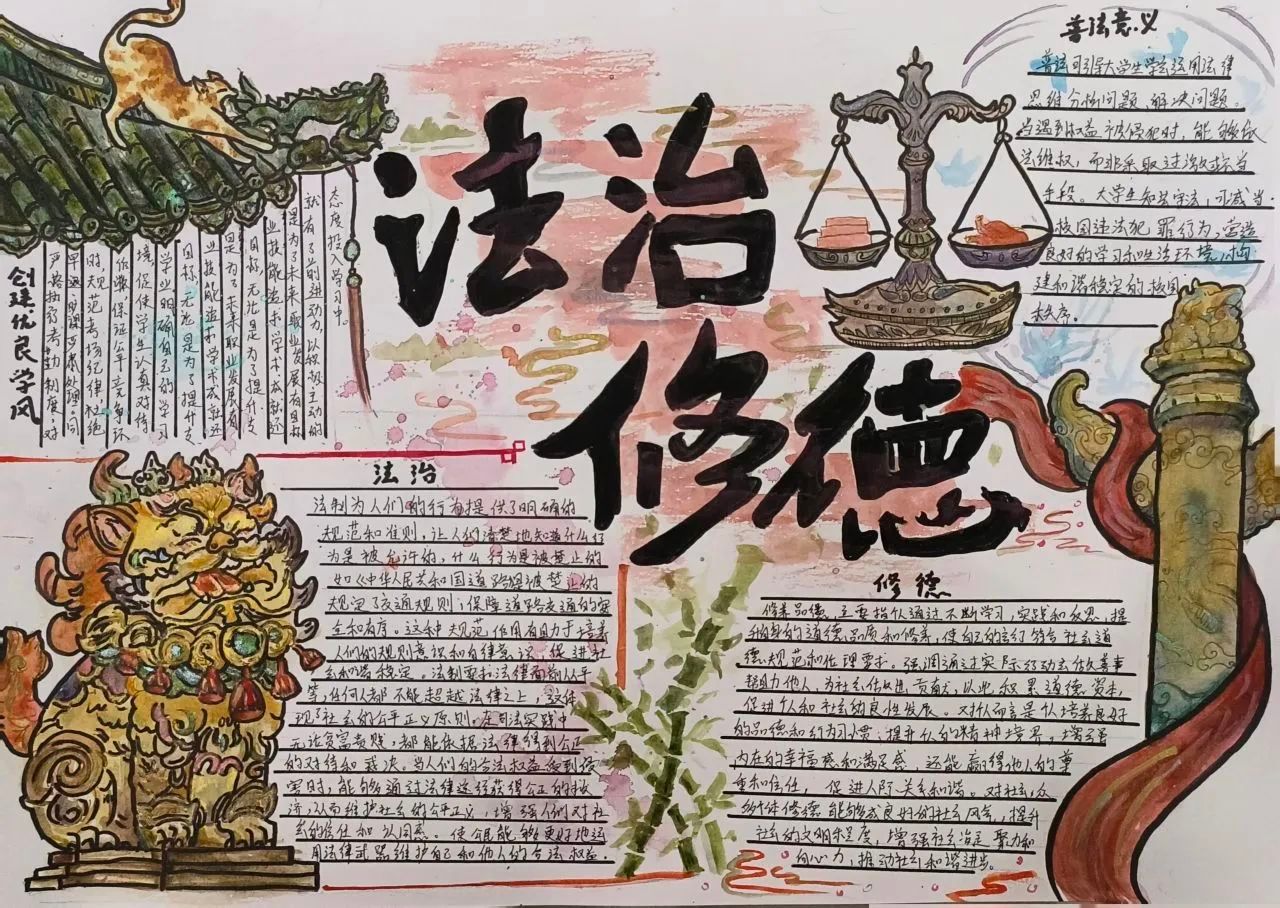 法治
修德
普法意义
普法可引导大学生学会运用法律
思维分析问题、解决问题。
当遇到权益被侵犯时,能够依
法维权,而非采取过激或不当
手段。大学生知法守法,可减少
校园违法犯罪行为,营造
良好的学习和生活环境,构
建和谐稳定的校园
秩序。
创建优良学风
严格执行考勤制度,对
早退、旷课
时,规范考场纪律,杜绝
作弊,保证公平竞争环
境,促使学生认真对待
学业明确自己的学习
目标,无论是为了提升专
业技能追求学术成就还
是为了未来职业发展有
目标,无论是为了提升专
业技能追求学术成就还
是为了未来职业发展有目标
就有了前进动力,以积极主动的
态度投入学习中。
法治
法制为人们的行为提供了明确的
规范和准则,让人们清楚地知道什么行
为是被允许的,什么行为是被禁止的
如《中华人民共和国道路
规定了交通规则;保障道路交通的安
全和有序。这种规范作用有助于培养
人们的规则意识和自律意识,促进社
会和谐稳定。法制要求法律面前人人平
等,任何人都不能超越法律之上,这体
现了社会的公平正义原则。在司法实践中
无论贫富贵贱,都能依据法律得到公正
的对待和裁决。当人们的合法权益受到侵
害时,能够通过法律途径获得公正的救
济,从而维护社会的公平正义,增强人们对社
会的信任和认同感。使公民能够更好地运
用法律武器维护自己和他人的合法权益。
修德
修养品德,主要指人通过不断学习、实践和反思,提
升自身的道德品质和修养,使自己的言行符合社会道
德规范和伦理要求。强调通过实际行动去做善事
帮助他人,为社会做出贡献,以此积累道德资本,
促进个人和社会的良性发展。对个人而言是以培养良好
的品德和行为习惯,提升人的精神境界,增强
内在的幸福感和满足感,还能赢得他人的尊
重和信任,促进人际关系和谐。对社会,众
多个体修德能够形成良好的社会风气,提升
社会的文明程度,增强社会凝聚力和
向心力,推动社会和谐进步。